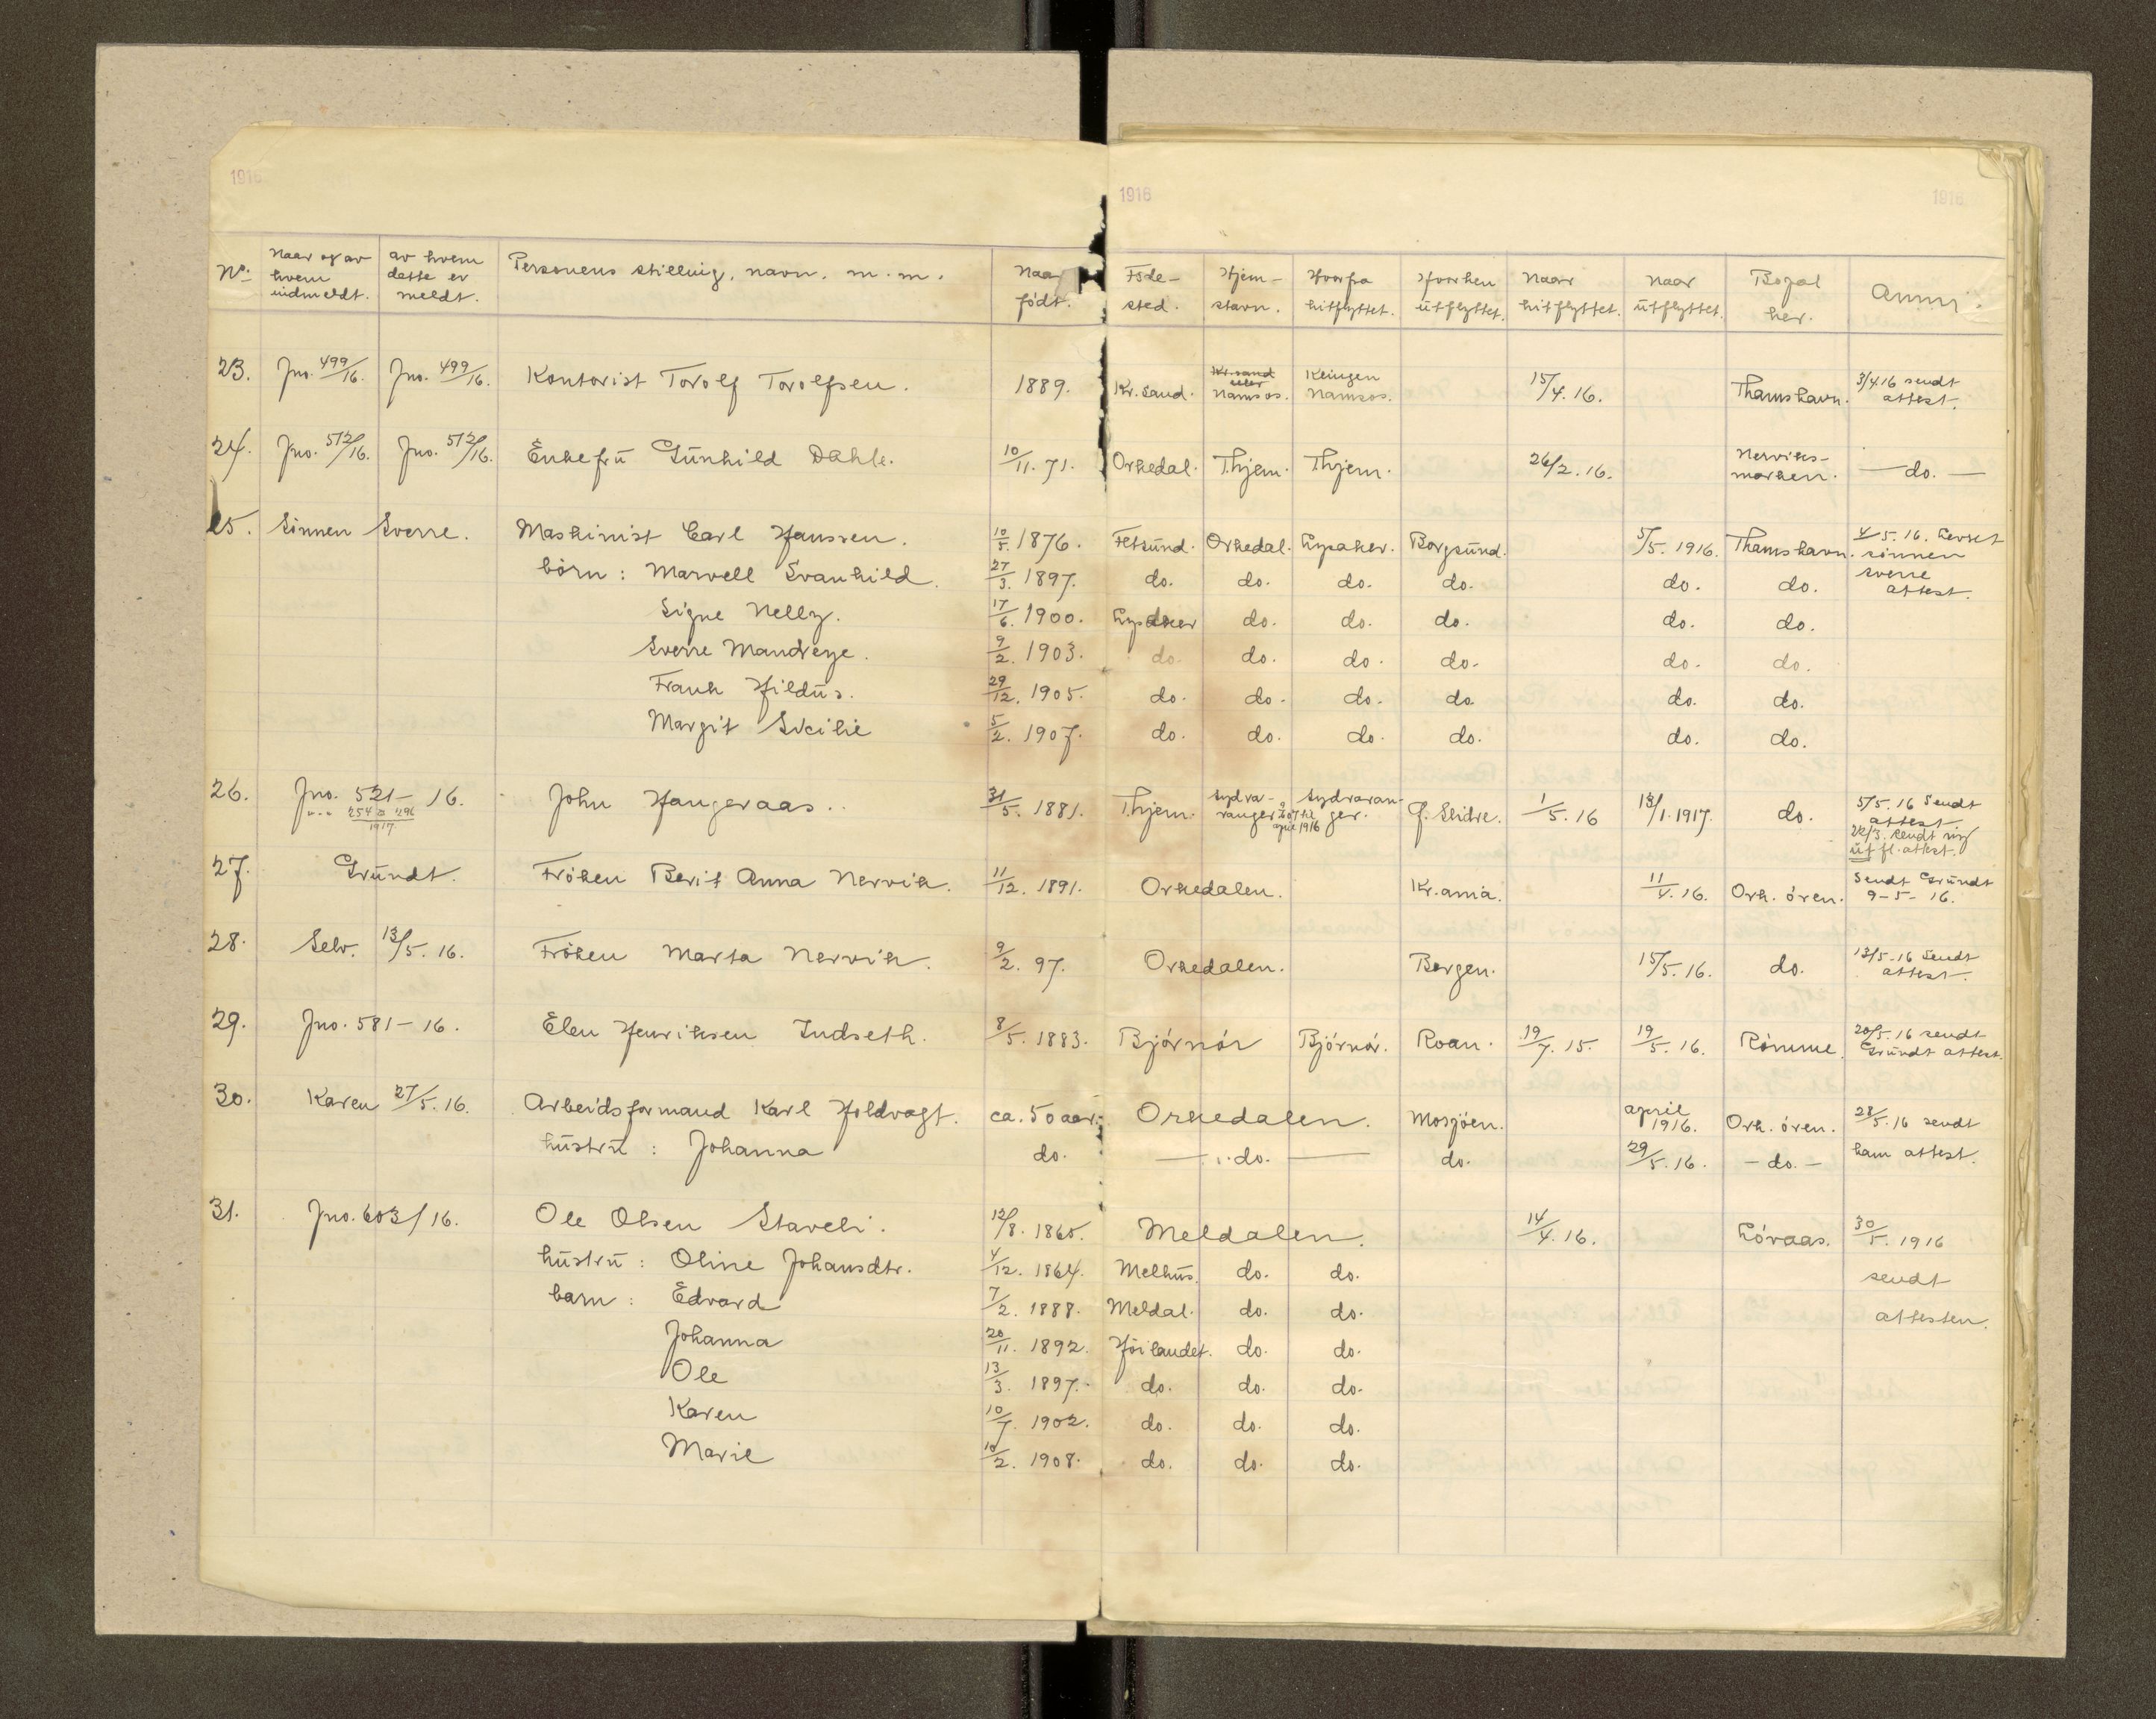 1916 1916 1916
No. Naar og av hvem indmeldt. av hvem dette er meldt. Personens stilling, navn. m. m. Naar födt.Föde-sted. Hjem-stavn. Hvorfra hitflyttet. Hvorhen utflyttet. Naar hitflyttet. Naar utflyttet. Bopæl her. Anm.
23. Jno. 499/16. Jno. 499/16. Kontorist Torolf Torolfsen. 1889. Kr. sand. Kr.sand eller Namsos. Klingen Namsos. 15/4. 16. Thamshavn. 3/4.16 sendt attest.
24. Jno. 512/16. Jno. 512/16. Enkefrü Günhild Dahle. 10/11. 71. Orkedal. Thjem. Thjem. 26/2. 16. Nerviks-marken. — do. —
25. Sönnen Sverre. Maskinist Carl Hanssen. 10/5. 1876. Fetsund. Orkedal. Lysaker. Borgsund. 5/5. 1916. Thamshavn. 4/5. 16. Levert sönnen Sverre attest.
börn: Marvell Svanhild. 27/3. 1897. do. do. do. do. do. do.
Signe Nelly. 17/6. 1900. Lysaker do. do. do. do. do.
Sverre Mandeye. 9/2. 1903. do. do. do. do. do. do.
Frank Hildüs. 29/12. 1905. do. do. do. do. do. do.
Margit 5/2. 1907. do. do. do. do. do. do.
26. Jno. 521 - 16. 254 & 296 1917 John Haugeraas. 31/5. 1881. Thjem. Sydvaranger til april 1916 Sydvaranger. Ø. Slidre. 1/5. 16 13/1. 1917. do. 5/5. 16 Sendt attest. 22/3. sendt ny utfl. attest.
27. Gründt. Fröken Berit Anna Nervik. 11/12. 1891. Orkedalen. Kr.ania. 11/4. 16. Ork. ören. Sendt Gründt 9-5-16.
28. Selv. 13/5. 16. Fröken Marta Nervik. 9/2. 97. Orkedalen. Bergen. 15/5. 16. do. 13/5-16 Sendt attest.
29. Jno. 581 - 16. Elen Henriksen Indseth. 8/5. 1883. Björnör Björnör. Roan. 19/7. 15. 19/5. 16. Römme. 20/5. 16 sendt Gründt attest.
30. Karen 27/5. 16. Arbeidsformand Karl Holdvagt. ca. 50 aar. Orkedalen. Mosjöen. april 1916. Ork. ören. 28/5. 16 sendt
hüstrü: Johanna do. — do. — do. 29/5. 16. - do. - ham attest.
31. Jno. 603/16. Ole Olsen Staveli. 12/8. 1865. Meldalen. 14/4. 16. Löraas. 30/5. 1916
hüstrü: Oline Johansdtr. 4/12. 1864. Melhüs. do. do. sendt
barn: Edvard 7/2. 1888. Meldal. do. do. attesten.
Johanna 20/11. 1892. Höilandet. do. do.
Ole 13/3. 1897. do. do. do.
Karen 10/7. 1902. do. do. do.
Marie 10/2. 1908. do. do. do.